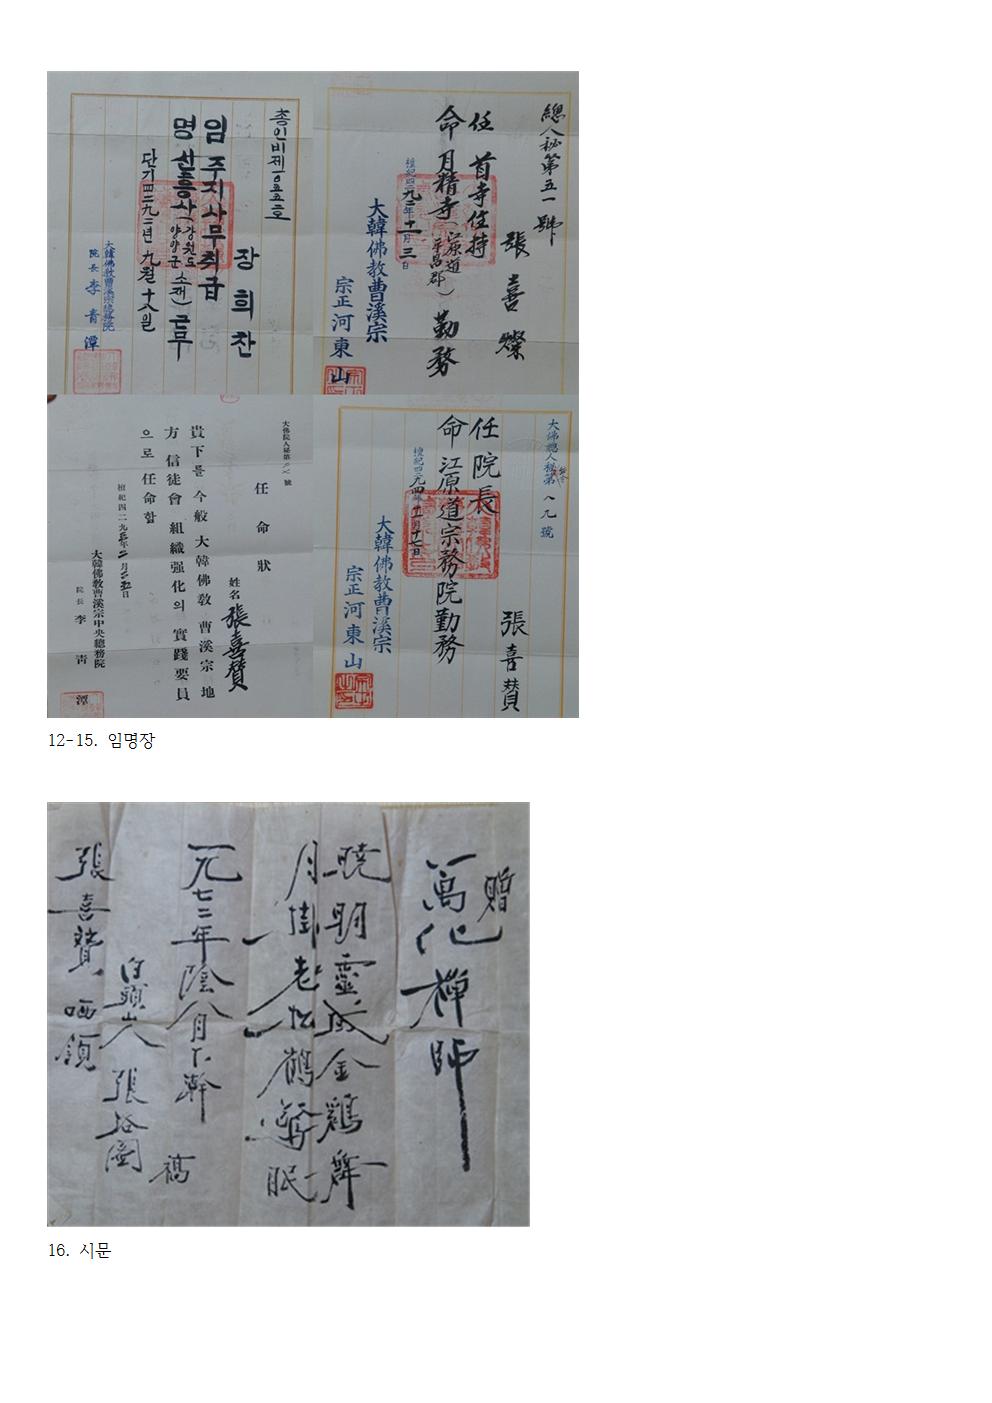 총인비제一0五五호
장희찬
임 주지사무취급
명 신흥사(강원도 양양군 소재) 근무
단기四二九二년 九월 十八일
大韓佛教曹溪宗總務院
院長 李青潭
總人秘第五一號
張喜燦
任 首寺住持
命 月精寺(江原道 平昌郡) 勤務
檀紀四二九二年十一月三日
大韓佛教曹溪宗
宗正 河東山
大佛院人秘第 號
任命狀
姓名 張喜贊
貴下를 今般 大韓佛敎 曹溪宗 地
方 信徒會 組織强化의 實踐要員
으로 任命함
檀紀四二九五年二月二五日
大韓佛敎曹溪宗中央總務院
院長 李靑潭
大佛總人秘第 八九號
張喜贊
任 院長
命 江原道宗務院勤務
檀紀四二九四年十一月十七日
大韓佛教曹溪宗
宗正 河東山
12-15. 임명장
贈
萬化禪師
曉明靈 金鷄舞
月掛老松鶴驚眠
一九七二年陰八月下澣
白頭山人 張 圖 稿
張喜贊 哂領
16. 시문